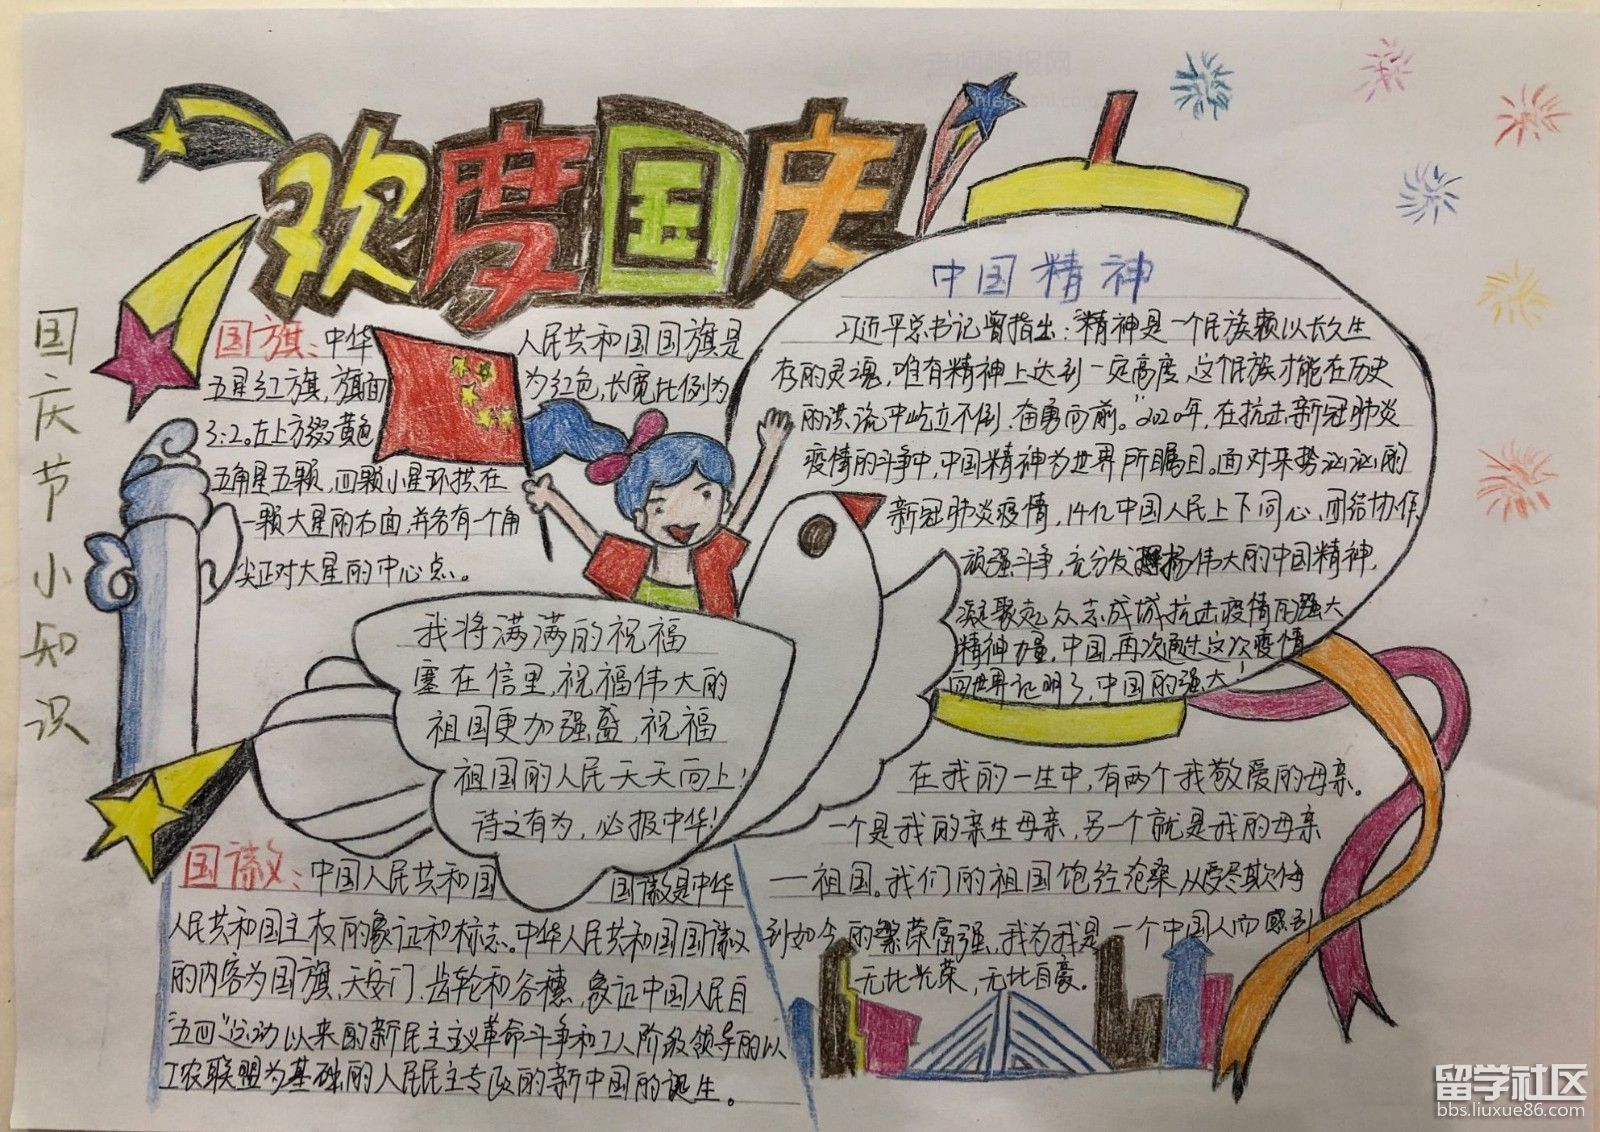 欢度国庆
国庆节小知识
国旗:中华人民共和国国旗是
五星红旗,旗面为红色,长宽比例为
3:2。左上方缀黄色
五角星五颗,四颗小星环拱在
一颗大星的右面,并各有一个角
尖正对大星的中心点。
我将满满的祝福
塞在信里,祝福伟大的
祖国更加强盛,祝福
祖国的人民天天向上!
诗文有为,必报中华!
国徽:中国人民共和国 国徽是中华
人民共和国主权的象征和标志。中华人民共和国国徽
的内容为国旗、天安门、齿轮和谷穗,象征中国人民自
“五四”运动以来的新民主主义革命斗争和工人阶级领导的以
工农联盟为基础的人民民主专政的新中国的诞生。
中国精神
习近平总书记曾指出:“精神是一个民族赖以长久生
存的灵魂,唯有精神上达到一定高度,这个民族才能在历史
的洪流中屹立不倒、奋勇向前。”2020年,在抗击新冠肺炎
疫情的斗争中,中国精神为世界所瞩目。面对来势汹汹的
新冠肺炎疫情,14亿中国人民上下同心,团结协作,
顽强斗争,充分发扬伟大的中国精神,
凝聚起众志成城抗击疫情的强大
精神力量,中国再次通过这次疫情
向世界证明了,中国的强大!
在我的一生中,有两个我敬爱的母亲。
一个是我的亲生母亲,另一个就是我的母亲
—祖国。我们的祖国饱经沧桑,从受尽欺侮
到如今的繁荣富强、我为我是一个中国人而感到
无比光荣,无比自豪。
留学社区
bbs.liuxue86.com